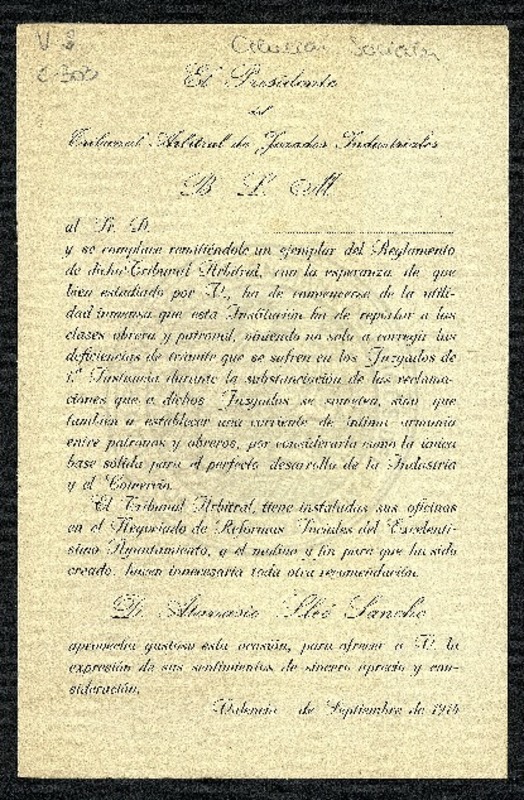 V 2
C-303
El Presidente
del
Tribunal Arbitral de Jurados Industriales
B L M
al Sr. D.
y se complace remitiéndole un ejemplar del Reglamento
de dicho Tribunal Arbitral, con la esperanza de que
bien estudiado por V., ha de convencerse de la utili-
dad inmensa que esta Institución ha de reportar a las
clases obrera y patronal, viniendo no solo a corregir las
deficiencias de trámite que se sufren en los Juzgados de
1.ª Instancia durante la substanciación de las reclama-
ciones que a dichos Juzgados se someten, sino que
también a establecer una corriente de íntima armonía
entre patronos y obreros, por considerarla como la única
base sólida para el perfecto desarrollo de la Industria
y el Comercio.
El Tribunal Arbitral, tiene instaladas sus oficinas
en el Negociado de Reformas Sociales del Excelentí-
simo Ayuntamiento, y el motivo y fin para que ha sido
creado, hacen innecesaria toda otra recomendación.
D. Atanasio Sleó Sancho
aprovecha gustoso esta ocasión, para ofrecer a V. la
expresión de sus sentimientos de sincero aprecio y con-
sideración.
Valencia de Septiembre de 1914